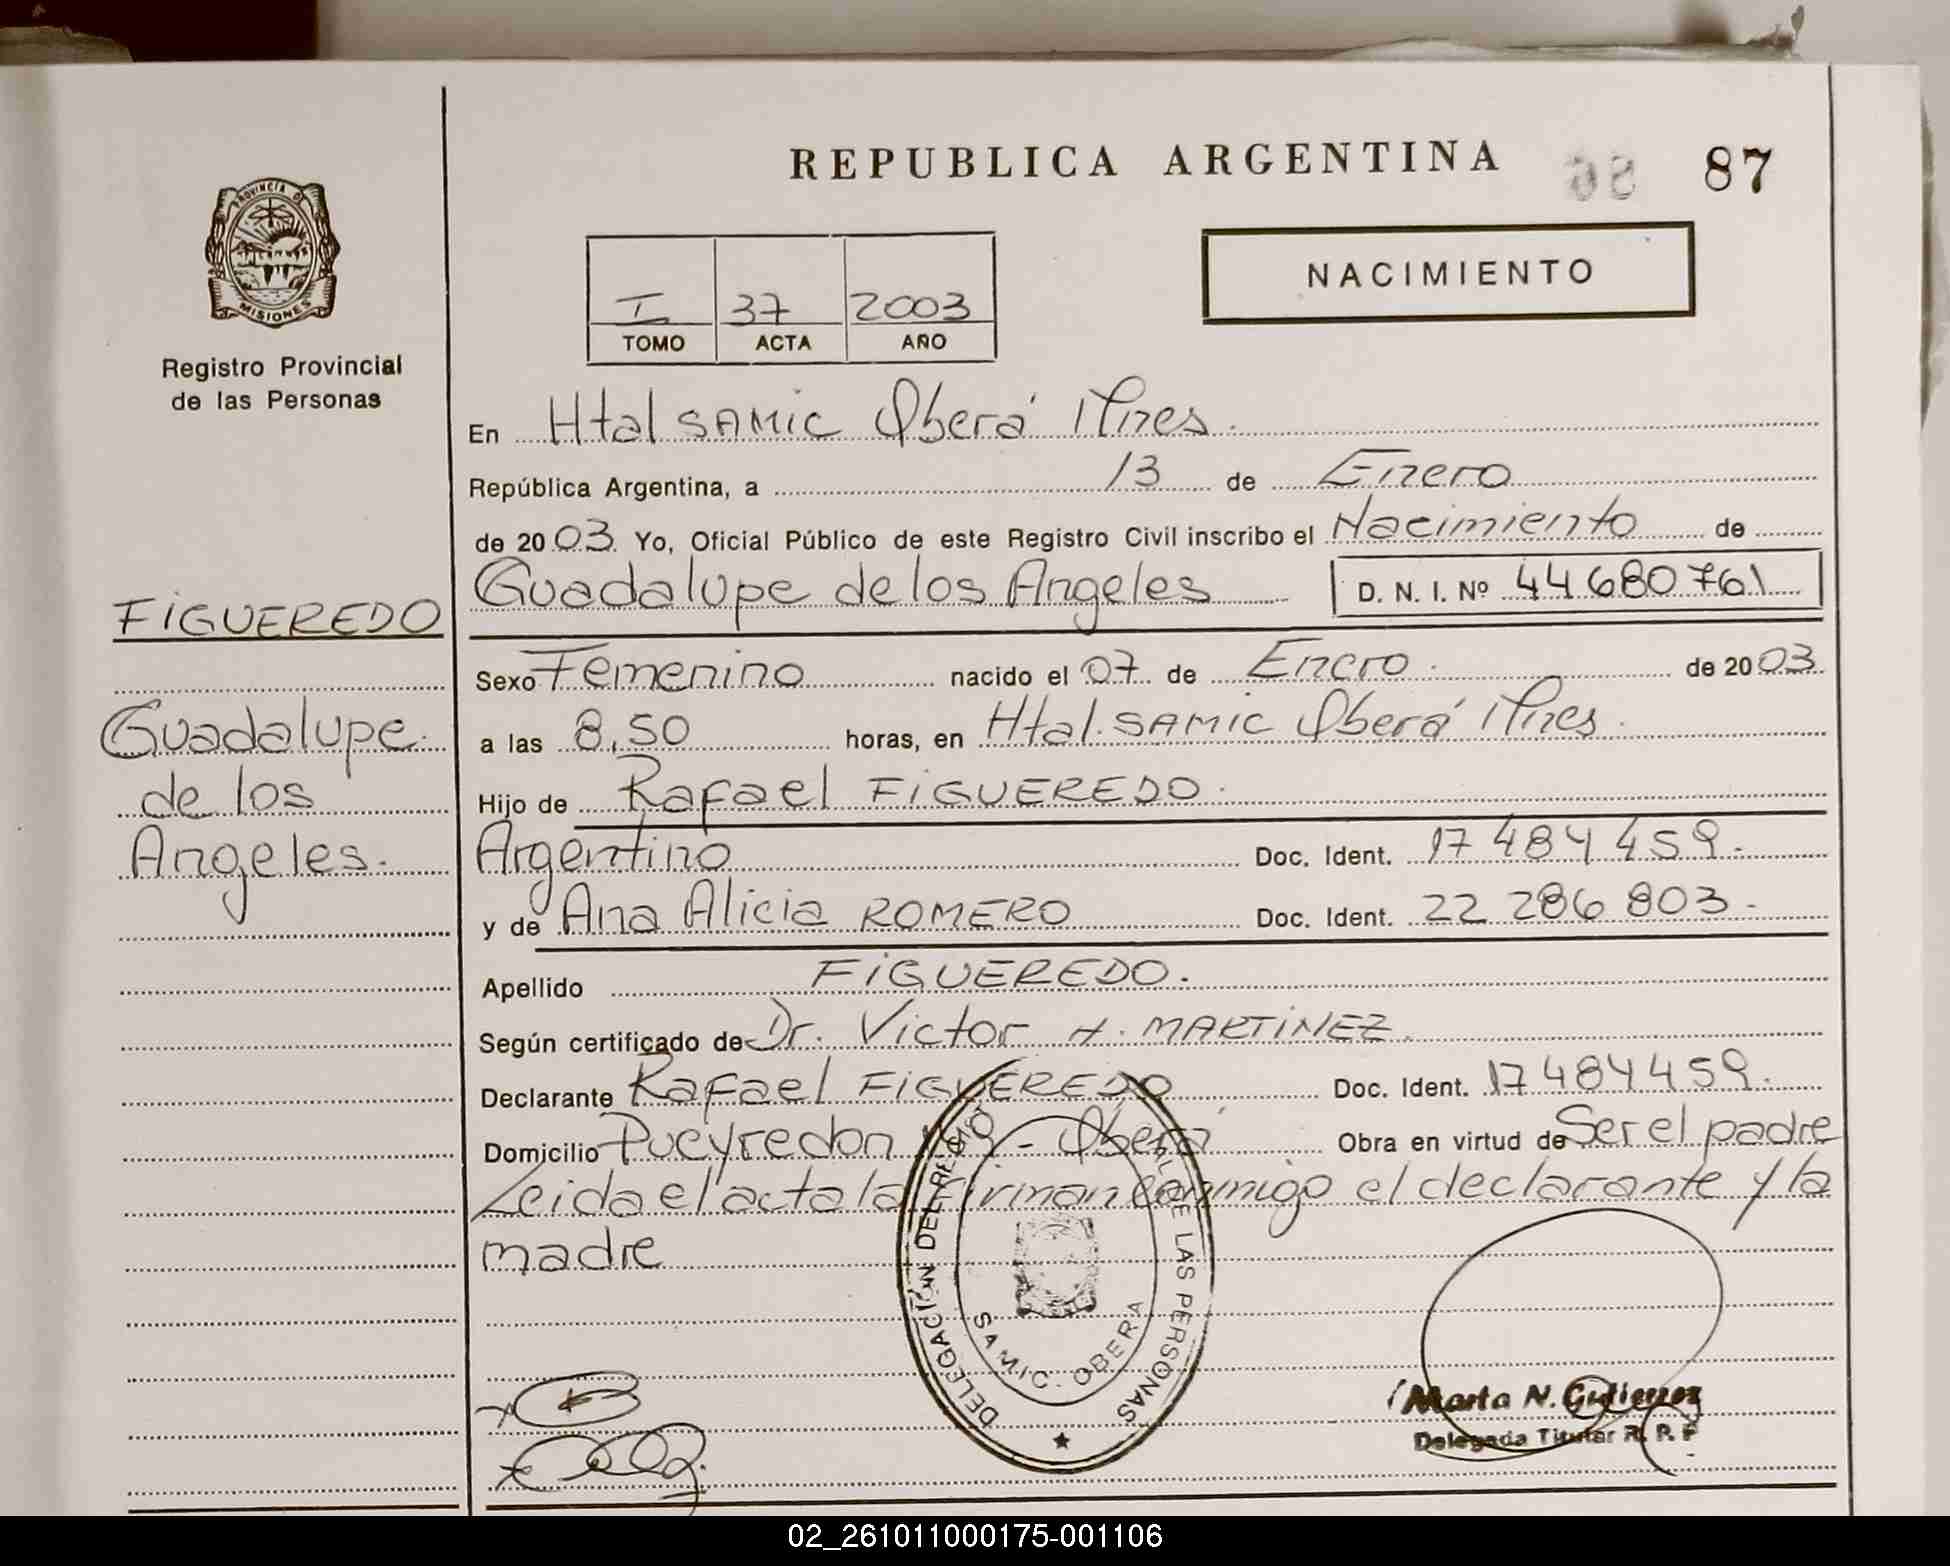 REPUBLICA ARGENTINA 87
PROVINCIA DE MISIONES
Registro Provincial
de las Personas
NACIMIENTO
I 37 2003
TOMO ACTA AÑO
En Htal SAMIC Oberá Mnes.
República Argentina, a 13 de Enero
de 2003. Yo, Oficial Público de este Registro Civil inscribo el Nacimiento de
Guadalupe de los Angeles D. N. I. Nº 44680761
FIGUEREDO
Guadalupe
de los
Angeles.
Sexo Femenino nacido el 07 de Enero. de 2003.
a las 8,50 horas, en Htal. SAMIC Oberá Mnes.
Hijo de Rafael FIGUEREDO.
Argentino Doc. Ident. 17 484 459.
y de Ana Alicia ROMERO Doc. Ident. 22 286 803.
Apellido FIGUEREDO.
Según certificado de Dr. Victor H. MARTINEZ.
Declarante Rafael FIGUEREDO Doc. Ident. 17484459.
Domicilio Pueyredon - Oberá Obra en virtud de Ser el padre
Leida el acta la firman conmigo el declarante y la
madre
DELEGACIÓN DEL REGISTRO DE LAS PERSONAS
SAMIC. OBERA
Marta N. Gutierrez
Delegada Titular R. P. P
02_261011000175-001106